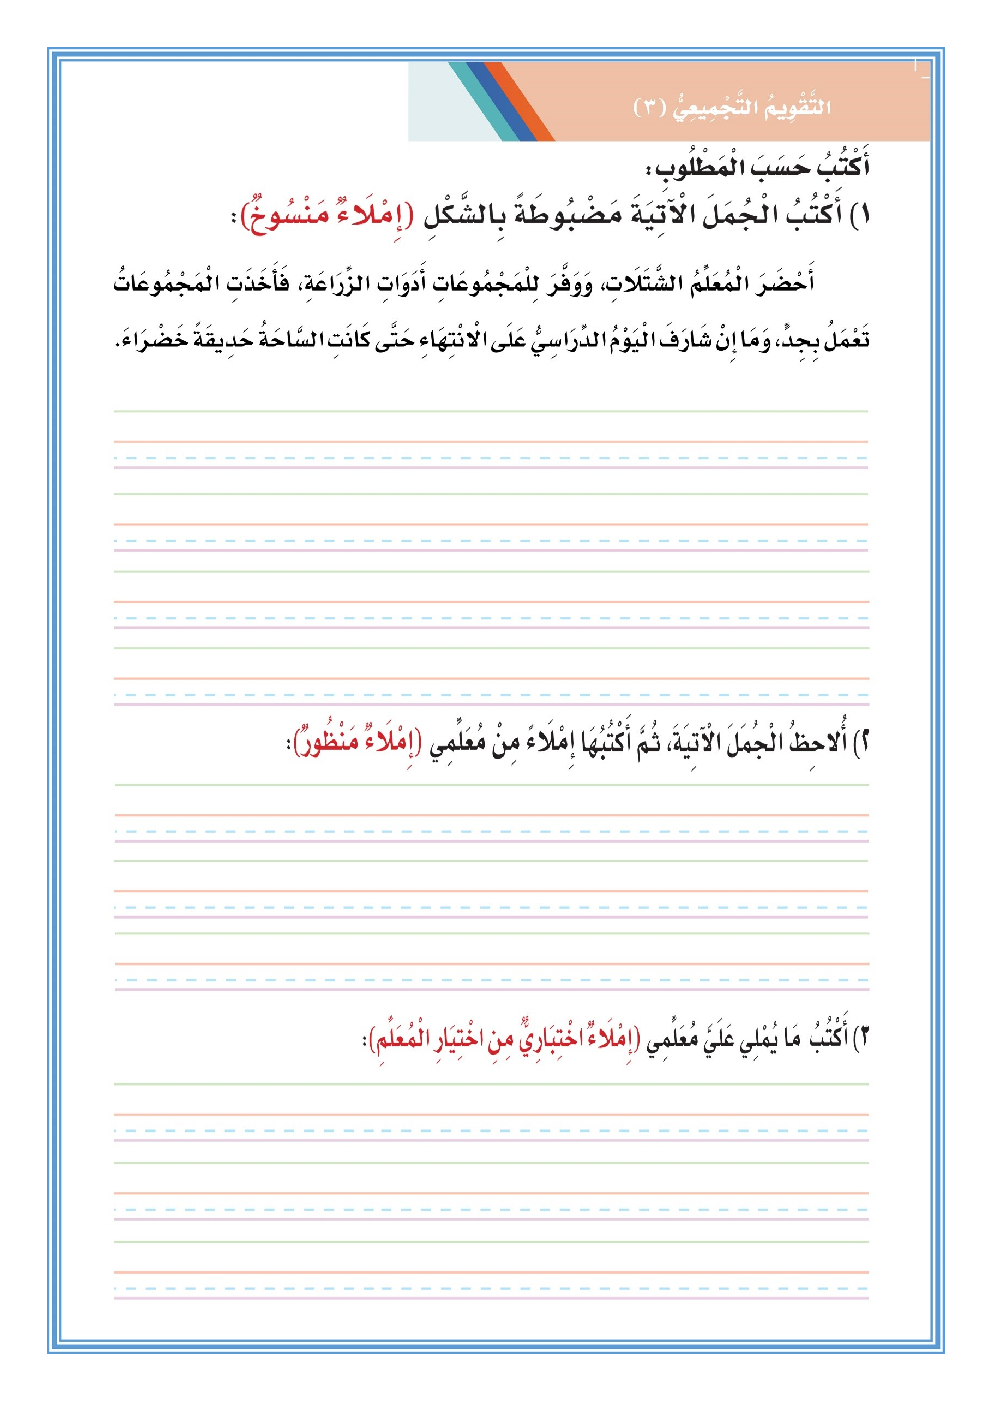 التَّقْوِيمُ التَّجْمِيعِيُّ (٣)
أَكْتُبُ حَسَبَ الْمَطْلُوبِ:
١) أَكْتُبُ الْجُمَلَ الْآتِيَةَ مَضْبُوطَةً بِالشَّكْلِ (إِمْلَاءٌ مَنْسُوخٌ):
أَحْضَرَ الْمُعَلِّمُ الشَّتَلَاتِ، وَوَفَّرَ لِلْمَجْمُوعَاتِ أَدَوَاتِ الزِّرَاعَةِ، فَأَخَذَتِ الْمَجْمُوعَاتُ
تَعْمَلُ بِجِدٍّ، وَمَا إِنْ شَارَفَ الْيَوْمُ الدِّرَاسِيُّ عَلَى الْانْتِهَاءِ حَتَّى كَانَتِ السَّاحَةُ حَدِيقَةً خَضْرَاءَ.
٢) أُلَاحِظُ الْجُمَلَ الْآتِيَةَ، ثُمَّ أَكْتُبُهَا إِمْلَاءً مِنْ مُعَلِّمِي (إِمْلَاءٌ مَنْظُورٌ):
٢) أَكْتُبُ مَا يُمْلِي عَلَيَّ مُعَلِّمِي (إِمْلَاءٌ اخْتِبَارِيٌّ مِنِ اخْتِيَارِ الْمُعَلِّمِ):